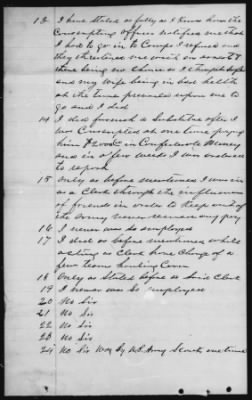 13 I have stated as fully as I know how the
Conscripting officer notified me that
I had to go in to Camps I refused and
they threatened me with an arrest
there being no chance as I thought
and my wife being in bad health
at the time prevailed upon me to
go and I did
14 I did furnish a Substitute after I
was Conscripted at one time paying
him in Confederate Money
and in a few weeks I was ordered
to report
15 Only as before mentioned I was in
as a Clerk through the influence
of friends in order to keep out of
the army never received any pay
16 I never was so employed
17 I did as before mentioned while
acting as Clerk have Charge of a
few teams hauling Corn
18 Only as stated before as said Clerk
19 I never was so employed
20 No Sir
21 No Sir
22 No Sir
23 No Sir
24 No Sir Was by Scouts one time